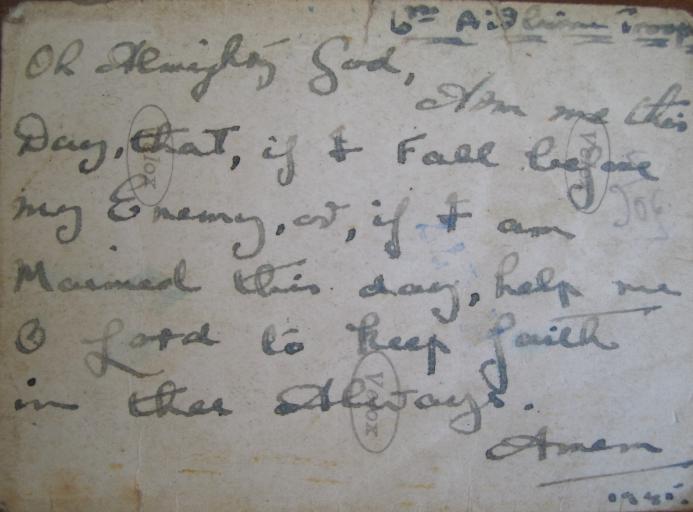 6th Airborne Troop
Oh Almighty God,
Arm me this
Day, that, if I Fall before
my Enemy, or, if I am
Maimed this day, help me
O Lord to keep faith
in thee Always.
Amen
1945.
Velox
Velox
Velox